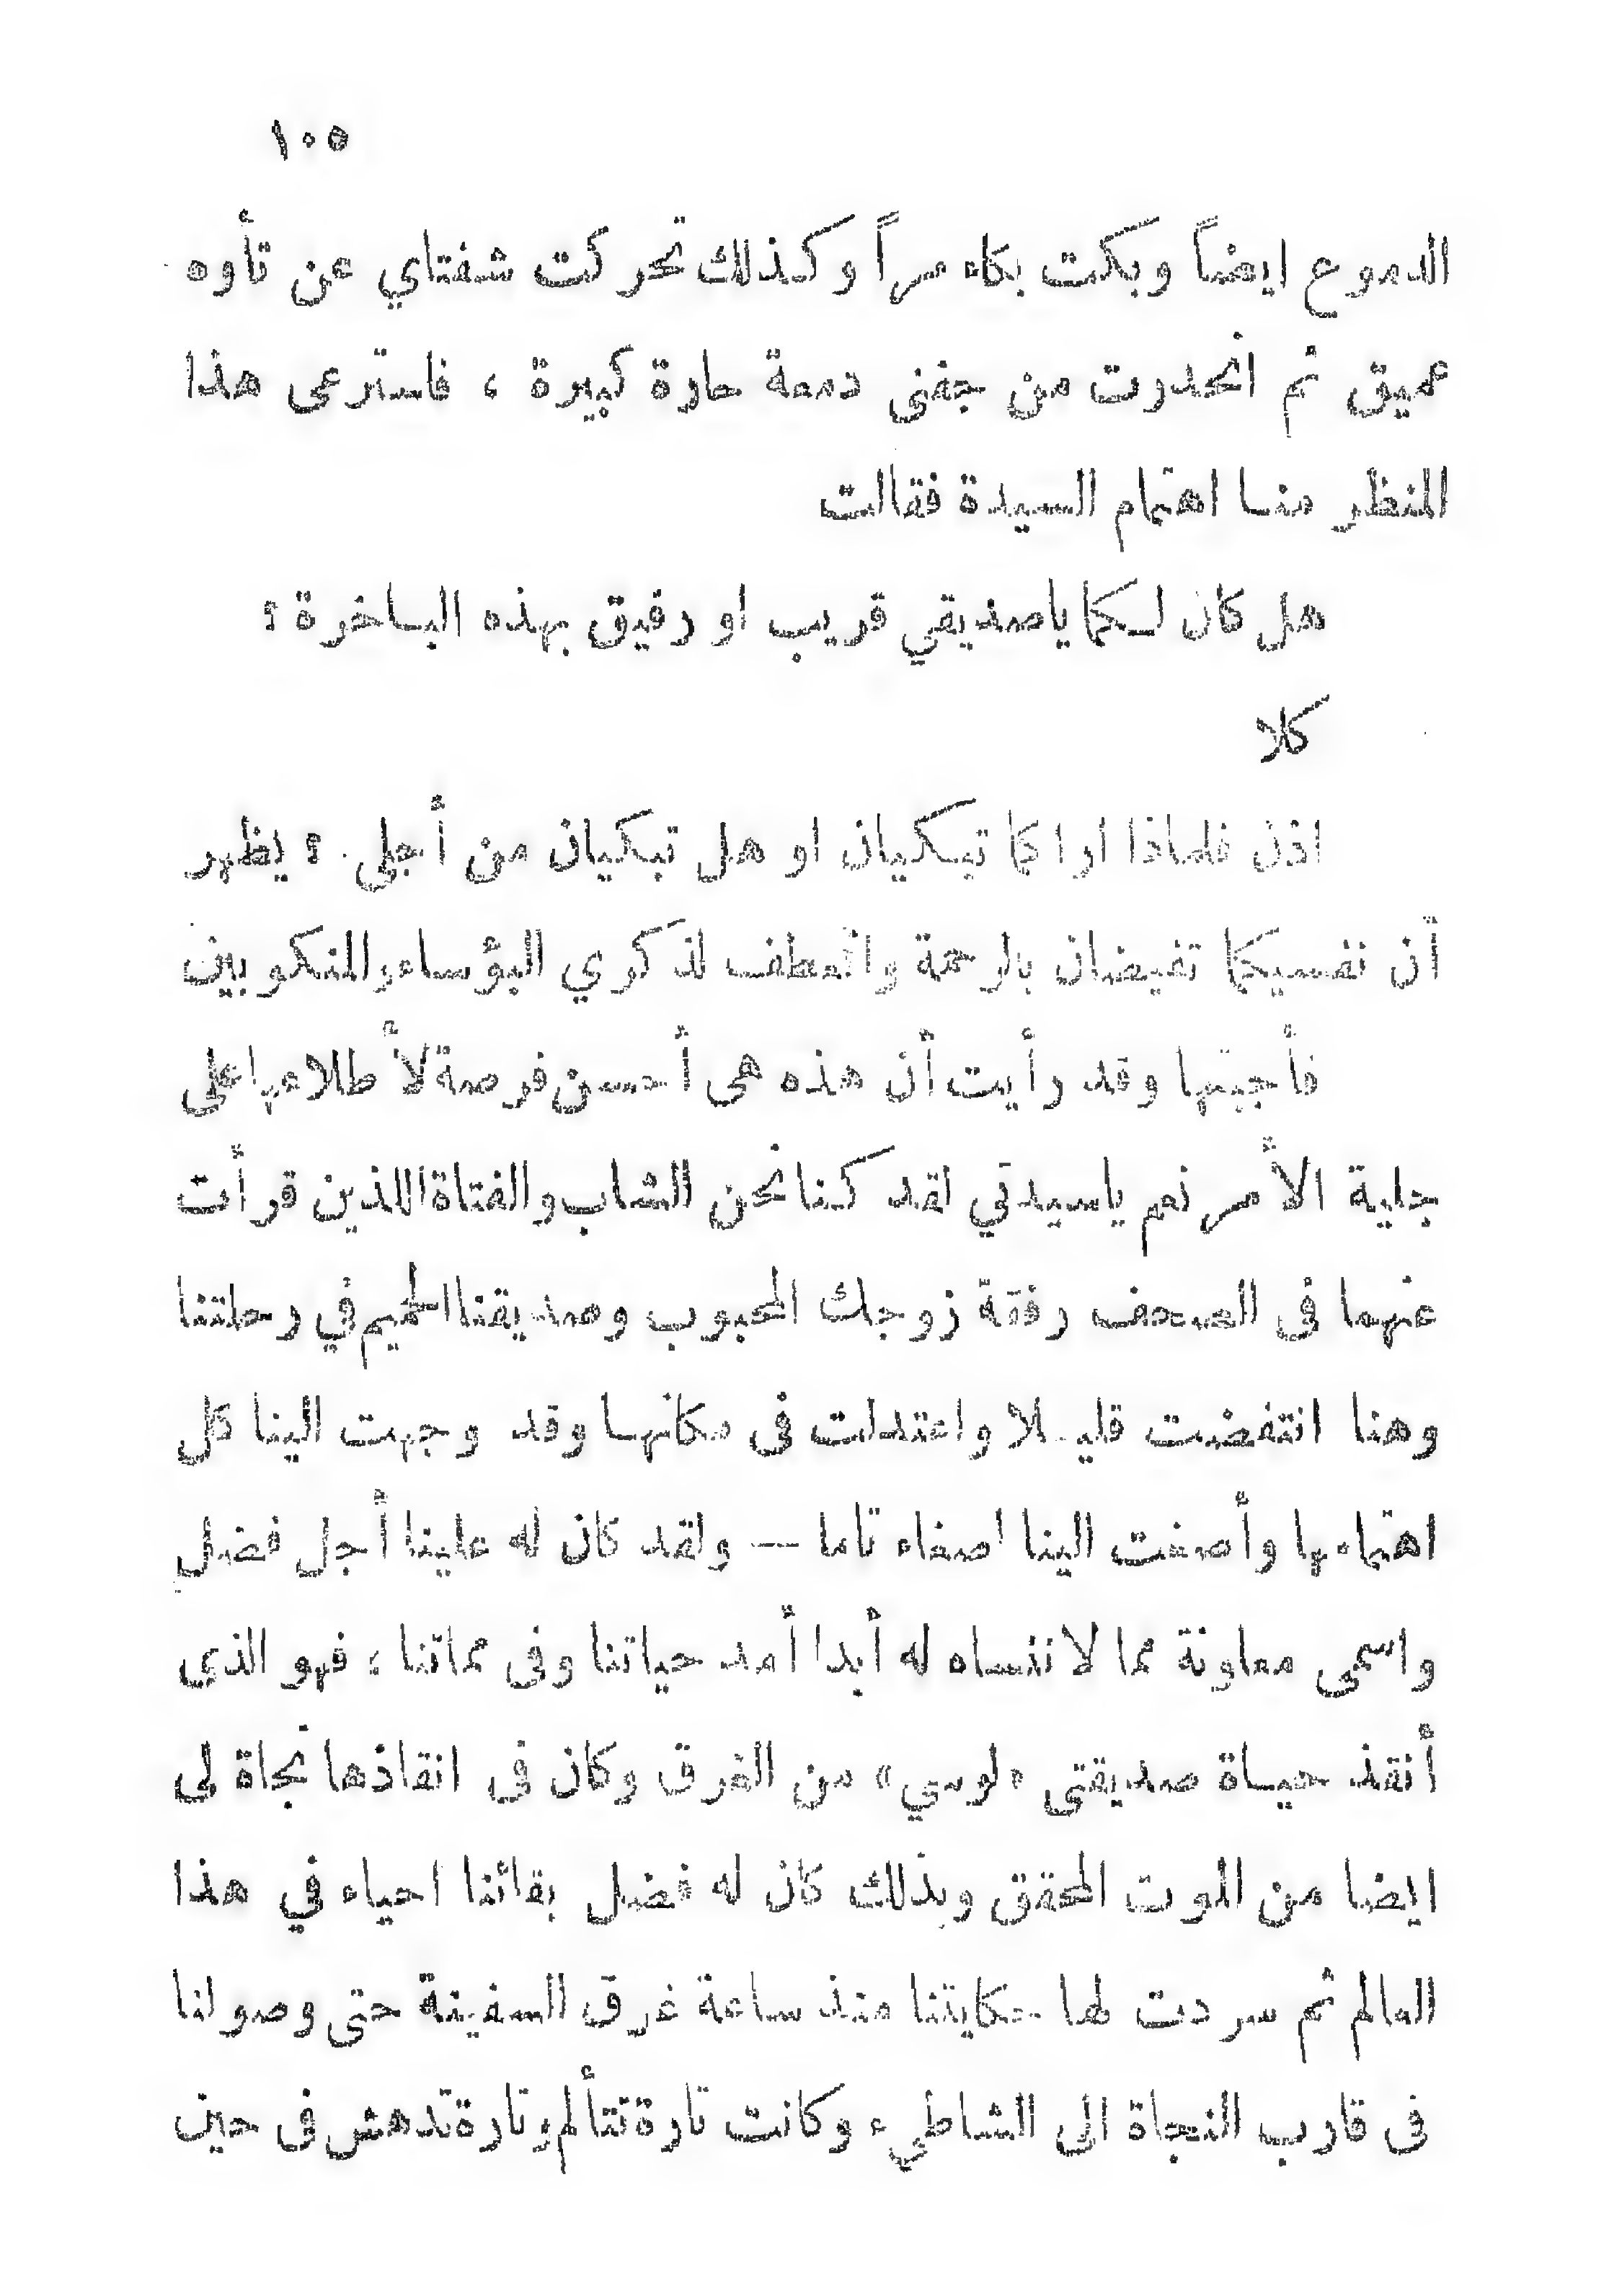 ١٠٥
الدموع ايضاً وبكت بكاء مراً وكذلك تحركت شفتاي عن تأوه
عميق ثم انحدرت من جفنى دمعة حارة كبيرة ، فاسترعى هذا
المنظر منا اهتمام السيدة فقالت
هل كان لكما ياصديقي قريب او رفيق بهذه الباخرة ؟
كلا
اذن فلماذا اراكما تبكيان او هل تبكيان من أجلى ؟ يظهر
أن نفسيكما تفيضان بالرحمة والعطف لذكري البؤساء والمنكوبين
فأجبتها وقد رأيت أن هذه هى أحسن فرصة لأطلاعها على
جلية الأمر نعم ياسيدتي لقد كنا نحن الشاب والفتاة اللذين قرأت
عنهما فى الصحف رفقة زوجك المحبوب وصديقنا الحميم في رحلتنا
وهنا انتفضت قليلا واعتدلت فى مكانها وقد وجهت الينا كل
اهتمامها وأصغت الينا اصغاء تاما — ولقد كان له علينا أجل فضل
واسمى معاونة مما لا ننساه له أبدا أمد حياتنا وفى مماتنا ، فهو الذى
أنقذ حياة صديقتى «لوسي» من الغرق وكان فى انقاذها نجاة لى
ايضا من الموت المحقق وبذلك كان له فضل بقائنا احياء في هذا
العالم ثم سردت لها حكايتنا منذ ساعة غرق السفينة حتى وصولنا
فى قارب النجاة الى الشاطيء وكانت تارة تتألم وتارة تدهش فى حين